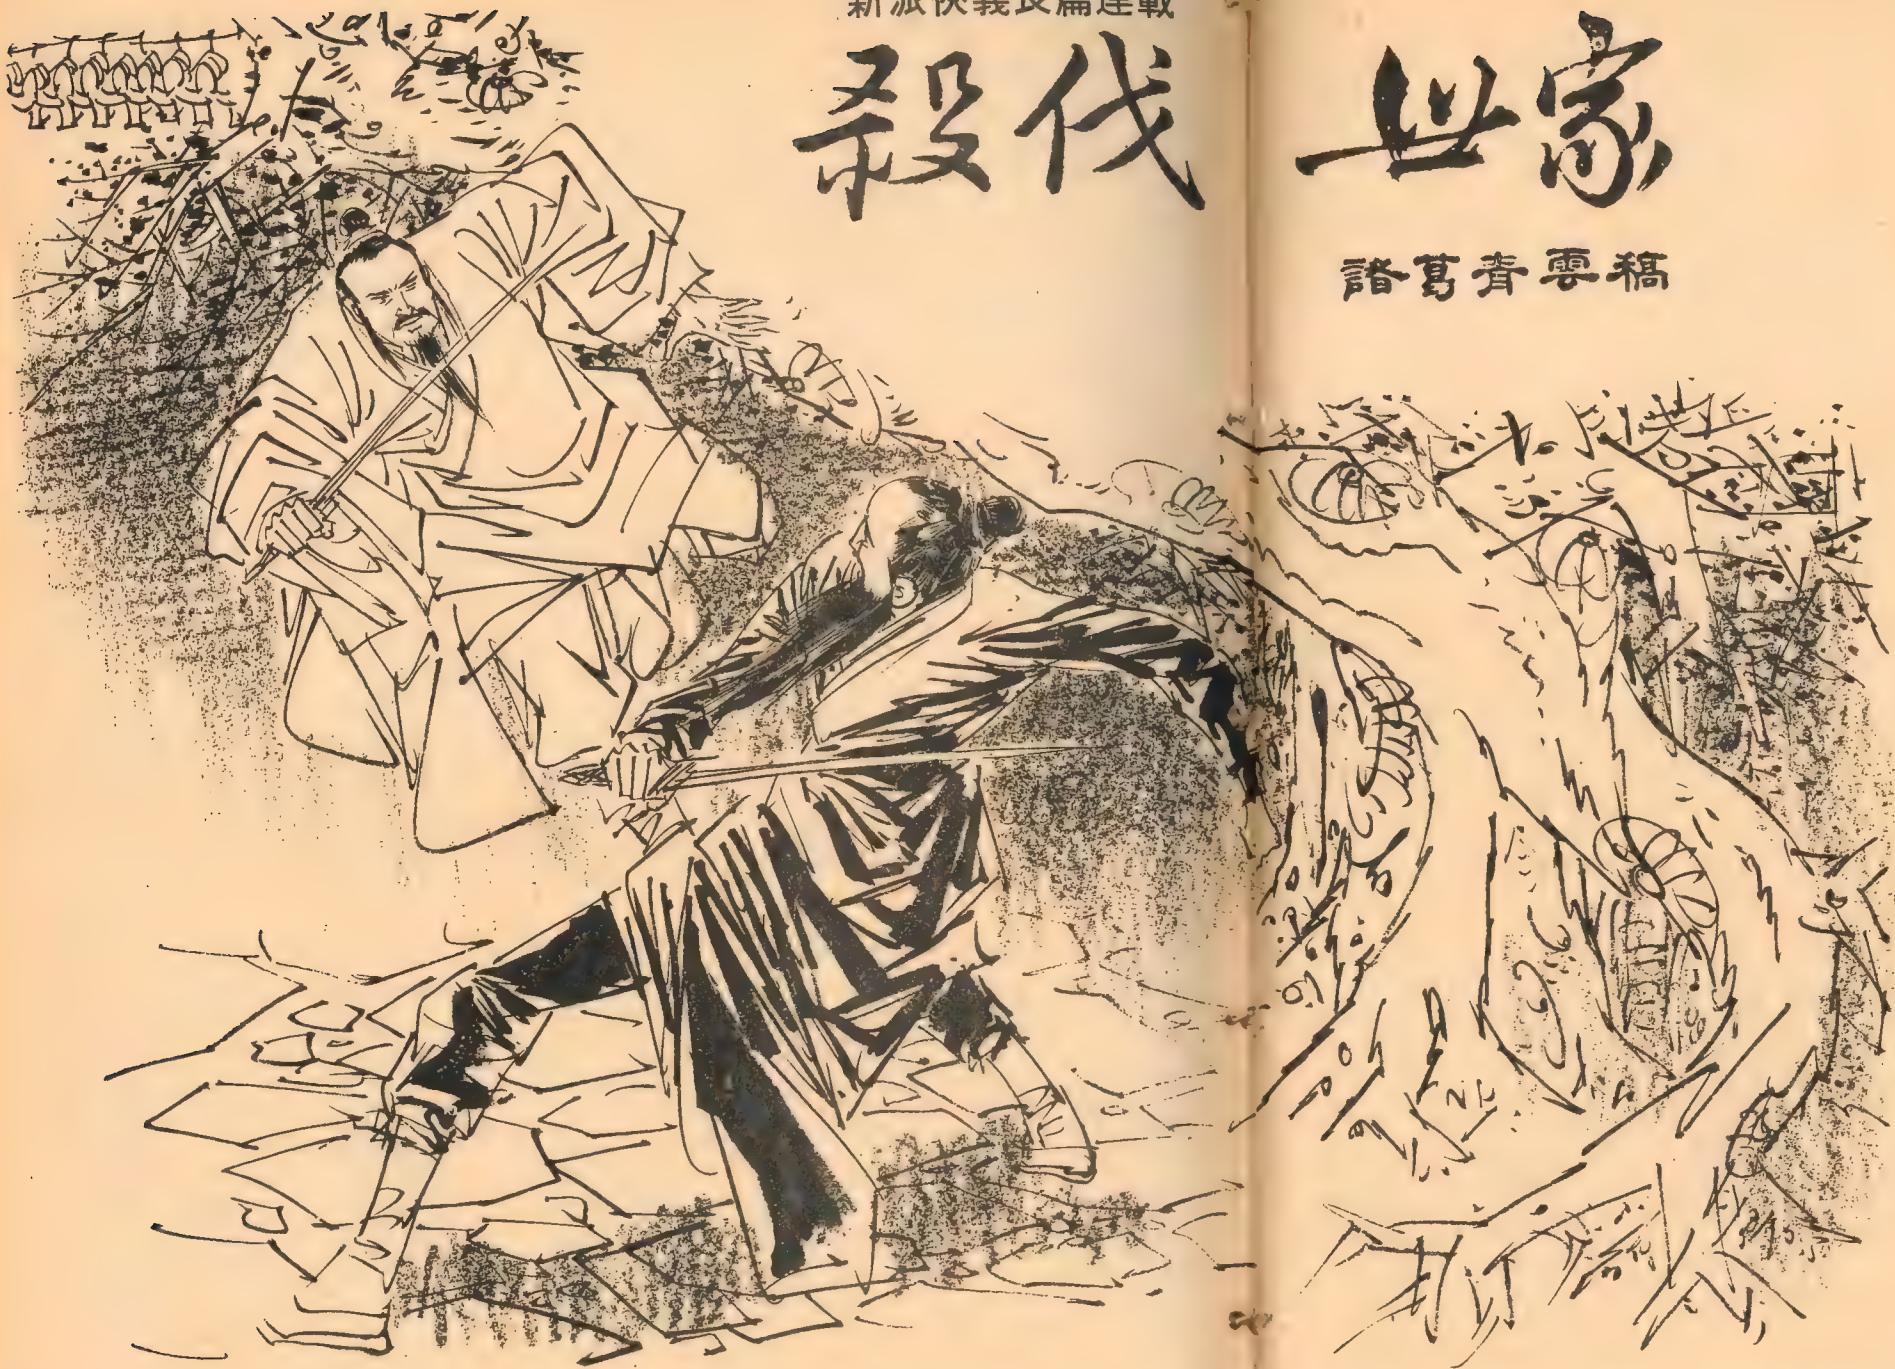 新派俠義長篇連載
殺伐世家
諸葛青雲稿